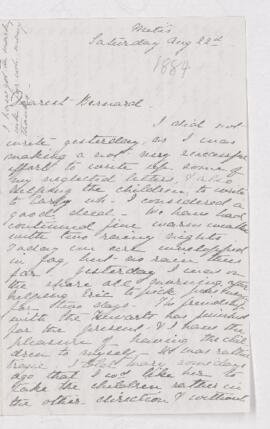 Metis
Saturday Aug 22nd
1884
Dearest Bernard.
I did not
write yesterday, as I was
making a not very successful
effort to write up some of
my neglected letters & also
helping the children to write
to Carly wh. I considered a
good deal. We have had
continued fine warm weather
with two rainy nights
Today we are enveloped
in fog, but no rain thus
far. yesterday I was on
the shore all morning
helping Eric to
for two days. The friendship
with the Howarts has finished
for the present & I have the
pleasure of having the chil
dren to myself. It was rather
I told Mary some days
ago that I wd like her to
take the children rather in
the other direction & without
I have got the
with thanks